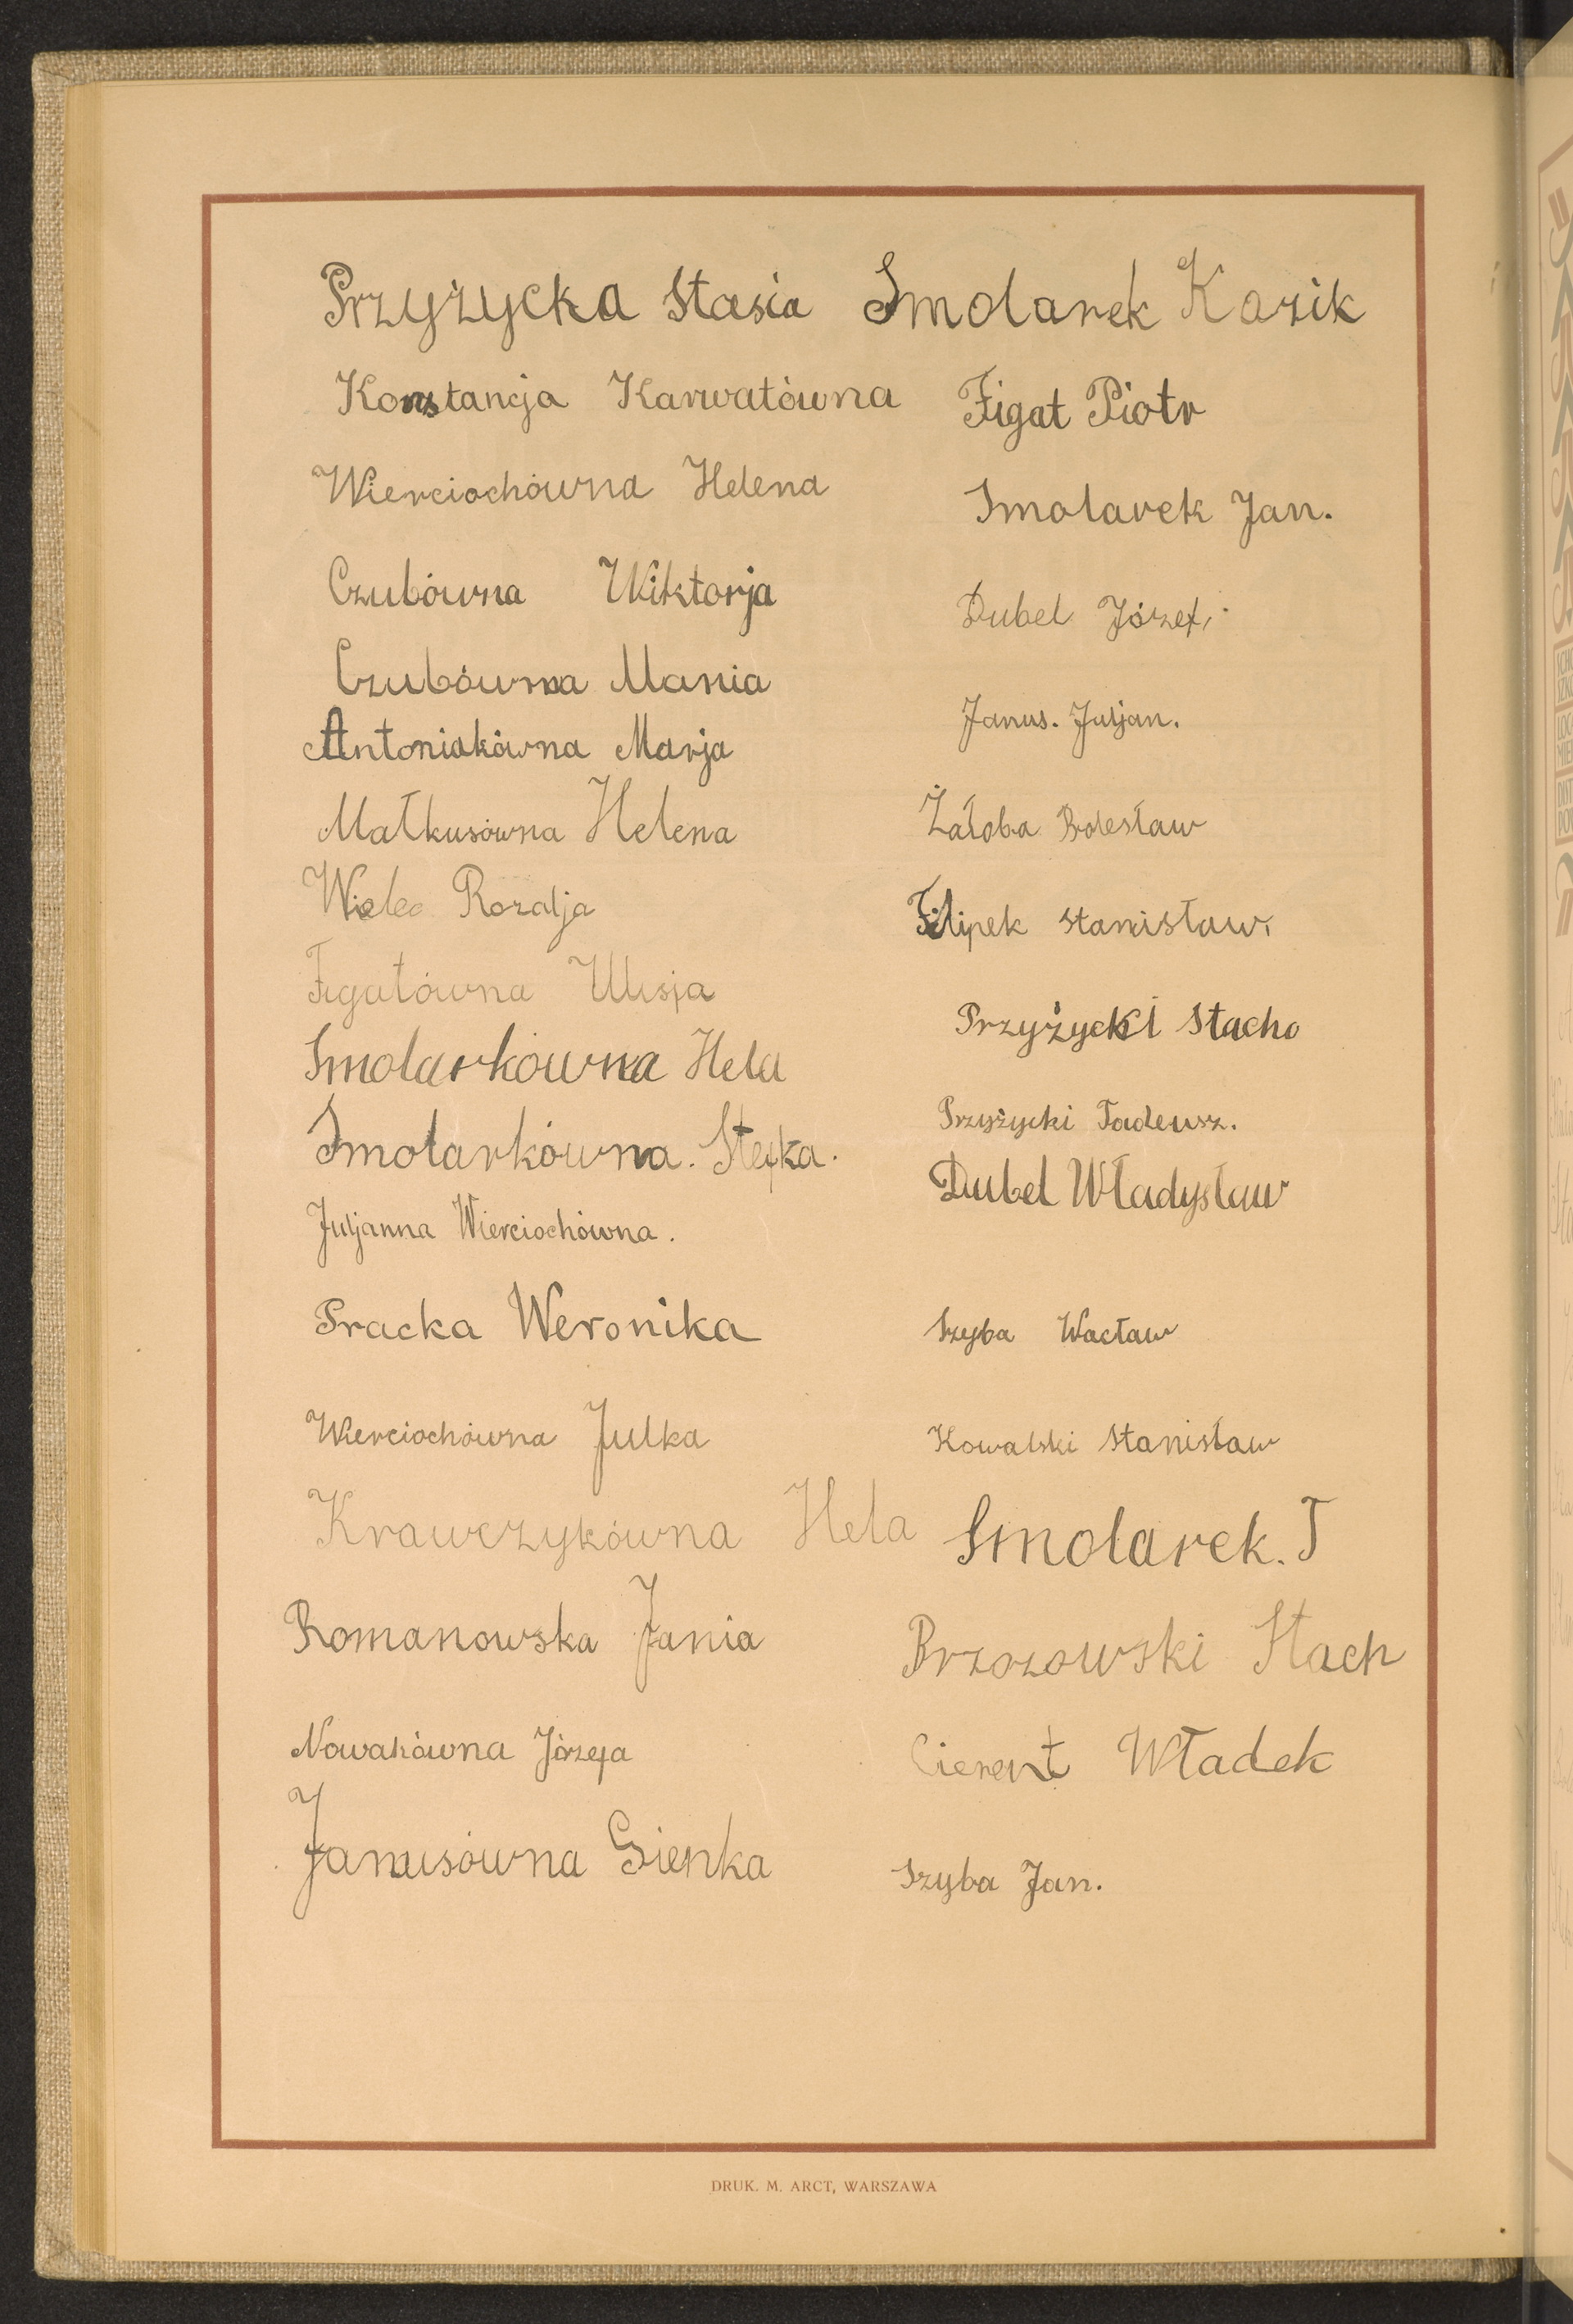 Przyżycka Stasia
Konstancja Karwatówna
Wierciochówna Helena
Czubówna Wiktorja
Czubówna Mania
Antoniakówna Marja
Małkusówna Helena
Rozalja
Figatówna
Smolarkówna Hela
Smolarkówna. Stefka.
Juljanna Wierciochówna.
Pracka Weronika
Wierciochówna Julka
Krawczykówna Hela
Romanowska Jania
Nowakówna Józefa
Janusówna Gienka
Smolarek Kazik
Figat Piotr
Smolarek Jan.
Dubel Józef.
Janus. Juljan.
Żałoba Bolesław
Filipek Stanisław.
Przyżycki Stacho
Przyżycki Tadeusz.
Dubel Władysław
Szyba Wacław
Kowalski Stanisław
Smolarek. T
Brzozowski Stach
Władek
Szyba Jan.
DRUK. M. ARCT, WARSZAWA